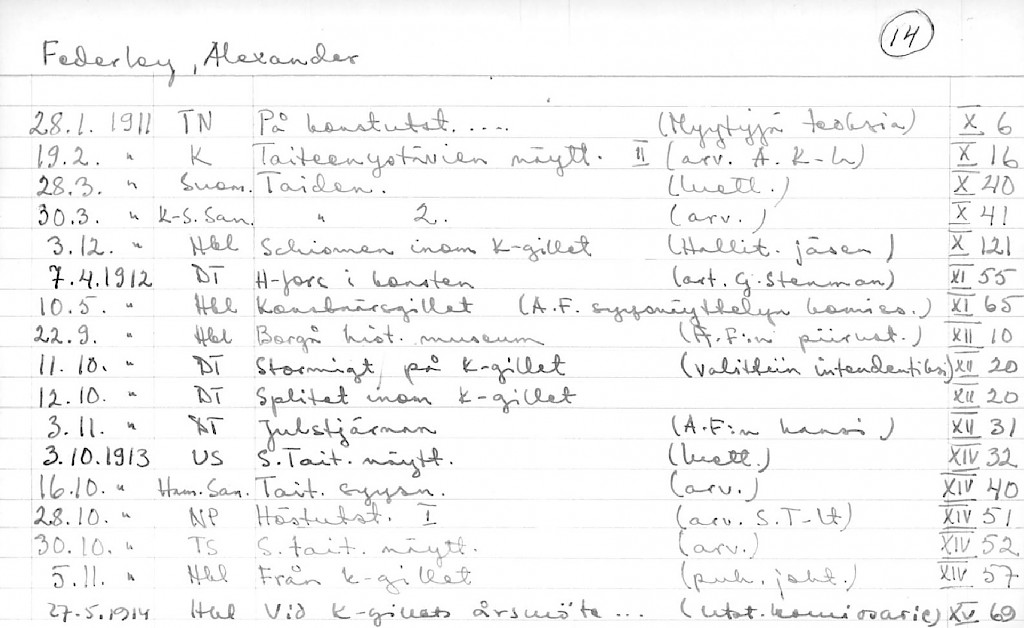 14
Federley, Alexander
28.1. 1911 TN På konstutst..... (Myytyjä teoksia) X 6
19.2. " K Taiteenystävien näytt. II (arv. A. K-n) X 16
28.3. " Suom. Taiden. (luett.) X 40
30.3. " K-S. San. " 2. (arv.) X 41
3.12. " Hbl Schismen inom K-gillet (Hallit. jäsen) X 121
7.4.1912 DT H-fors i konsten (art. G. Stenman) XI 55
10.5. " Hbl Konstnärsgillet (A.F. syysnäyttelyn komiss.) XI 65
22.9. " Hbl Borgå hist. museum (A.F:n piirust.) XII 10
11.10. " DT Stormigt på K-gillet (valittiin intendentiksi) XII 20
12.10. " DT Splitet inom K-gillet XII 20
3.11. " DT Julstjärnan (A.F:n kansi) XII 31
3.10.1913 US S.Tait. näytt. (luett.) XIV 32
16.10. " Ham. San. Tait. syysn. (arv.) XIV 40
28.10. " NP Höstutst. I (arv. S. T-lt) XIV 51
30.10. " TS S. tait. näytt. (arv.) XIV 52
5.11. " Hbl Från K-gillet (puh. joht.) XIV 57
27.5.1914 Hbl Vid K-gillets årsmöte ... (utst. komissarie) XV 69